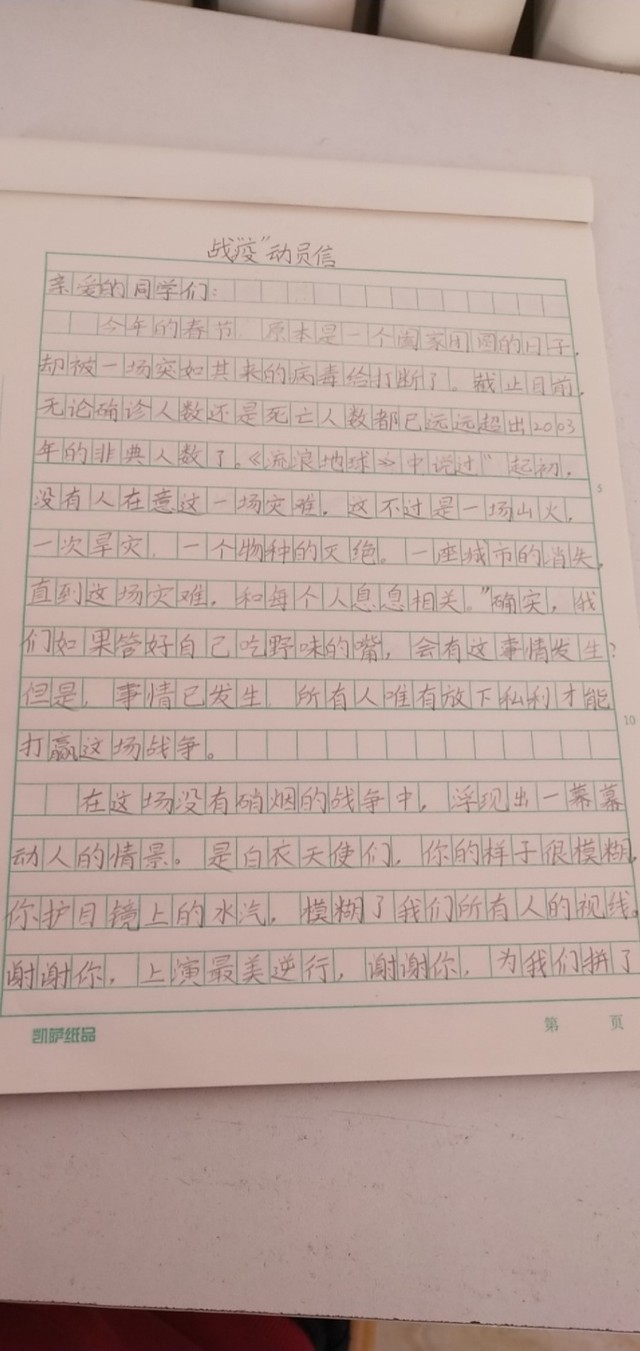 战“疫”动员信
亲爱的同学们：
今年的春节，原本是一个阖家团圆的日子，
却被一场突如其来的病毒给打断了。截止目前，
无论确诊人数还是死亡人数都已远远超出2003
年的非典人数了。《流浪地球》中说过“起初，
没有人在意这一场灾难，这不过是一场山火，
一次旱灾，一个物种的灭绝。一座城市的消失，
直到这场灾难，和每个人息息相关。”确实，我
们如果管好自己吃野味的嘴，会有这事情发生？
但是，事情已发生，所有人唯有放下私利才能
打赢这场战争。
在这场没有硝烟的战争中，浮现出一幕幕
动人的情景。是白衣天使们，你的样子很模糊，
你护目镜上的水汽，模糊了我们所有人的视线。
谢谢你，上演最美逆行，谢谢你，为我们拼了
凯萨纸品
第 页
5
10